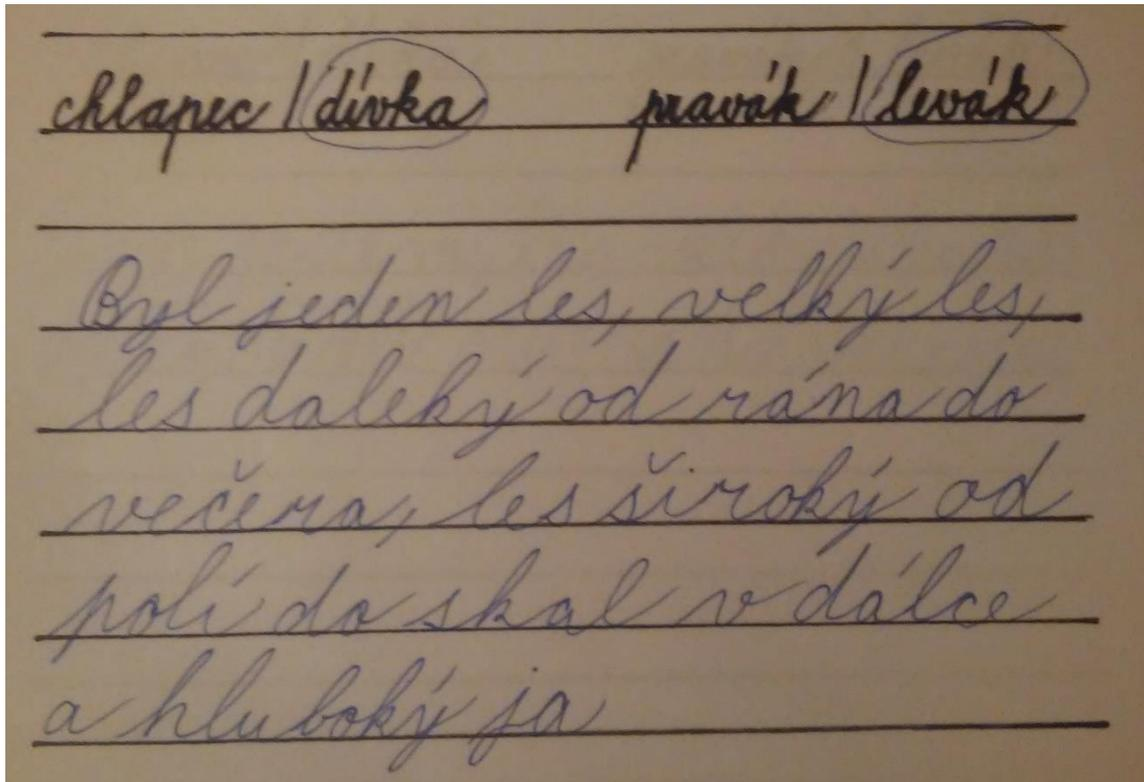 chlapec / dívka pravák / levák
Byl jeden les, velký les,
les daleký od rána do
večera, les široký od
polí do skal v dálce
a hluboký ja